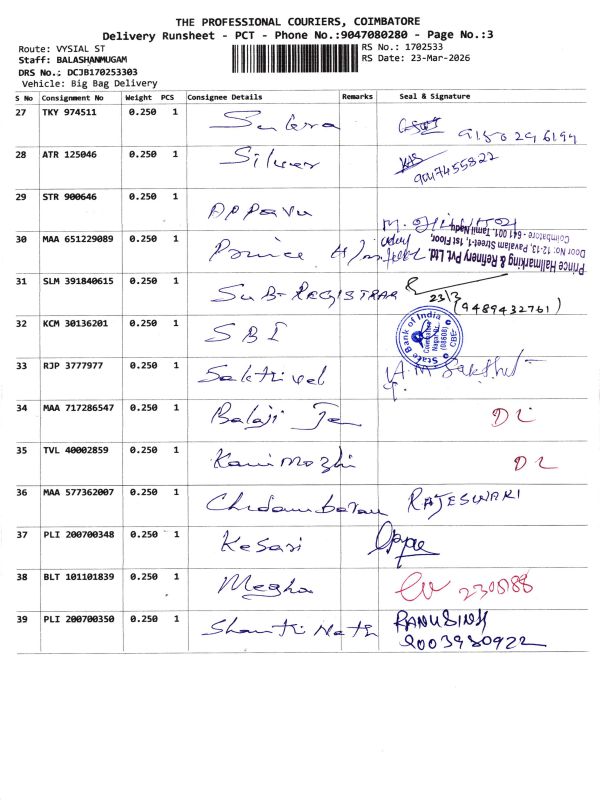 THE PROFESSIONAL COURIERS, COIMBATORE
Delivery Runsheet - PCT - Phone No.:9047080280 - Page No.:3
Route: VYSIAL ST
RS No.: 1702533
Staff: BALASHANMUGAM
RS Date: 23-Mar-2026
DRS No.; DCJB170253303
Vehicle: Big Bag Delivery
S No Consignment No Weight PCS Consignee Details Remarks Seal & Signature
27 TKY 974511 0.250 1
28 ATR 125046 0.250 1 Silver 9047455822
29 STR 900646 0.250 1 Appavu
30 MAA 651229089 0.250 1 Prince
Prince Hallmarking & Refinery Pvt Ltd.
Door No: 12-13, Pavalam Street-1, 1st Floor,
Coimbatore - 641 001. Tamil Nadu
31 SLM 391840615 0.250 1 SUB-REGISTRAR 23/3 (9489432761)
32 KCM 30136201 0.250 1 SBI
State Bank of India
33 RJP 3777977 0.250 1 Sakthivel
34 MAA 717286547 0.250 1 Balaji
35 TVL 40002859 0.250 1 Kanimozhi
36 MAA 577362007 0.250 1 Chidambaram RAJESWARI
37 PLI 200700348 0.250 1 Kesari
38 BLT 101101839 0.250 1 Megha
39 PLI 200700350 0.250 1 Shanti Nath RANUSINGH
9003980922